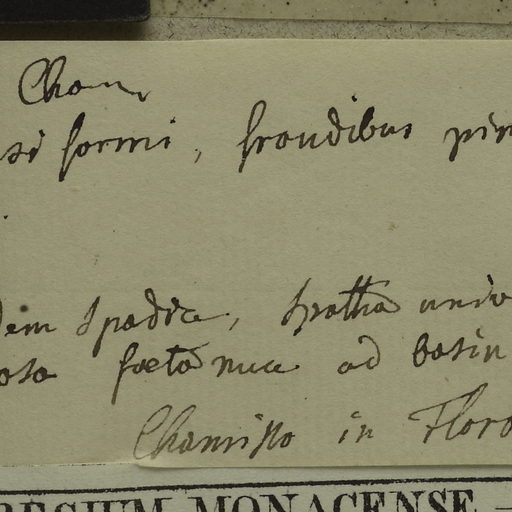 Cham.
si formi, frondibus pin
dem spadice, spatha univ
osa foeta nuce ad basin
Chamisso in Flora
REGIUM MONACENSE —